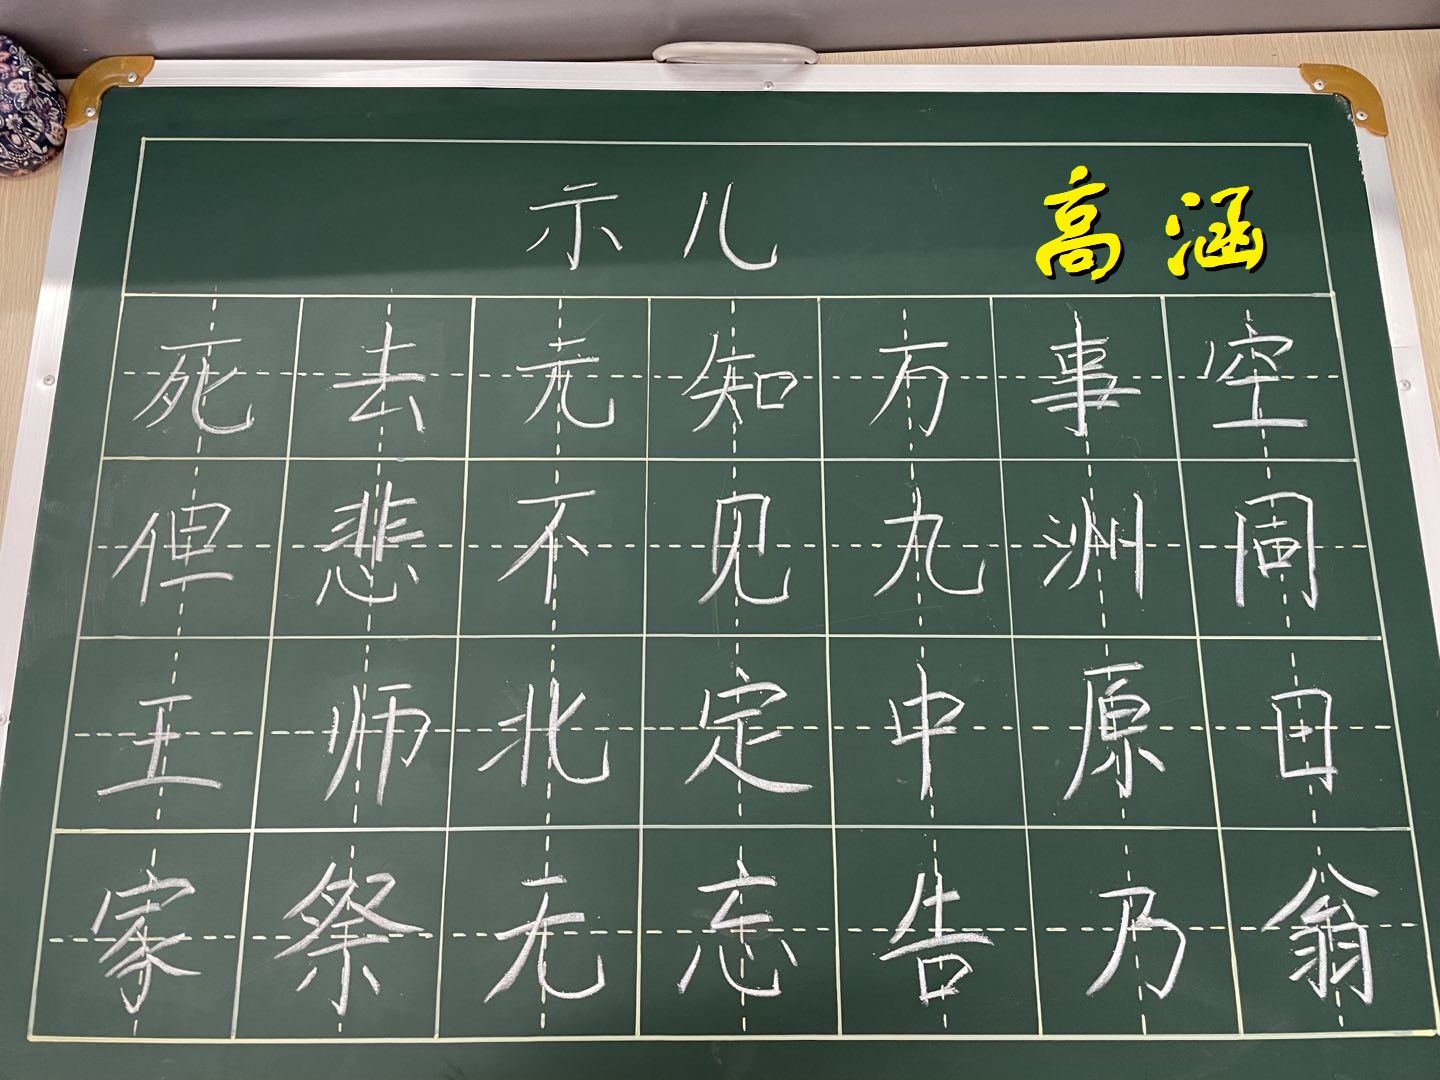 示儿 高涵
死去元知万事空
但悲不见九洲同
王师北定中原日
家祭无忘告乃翁